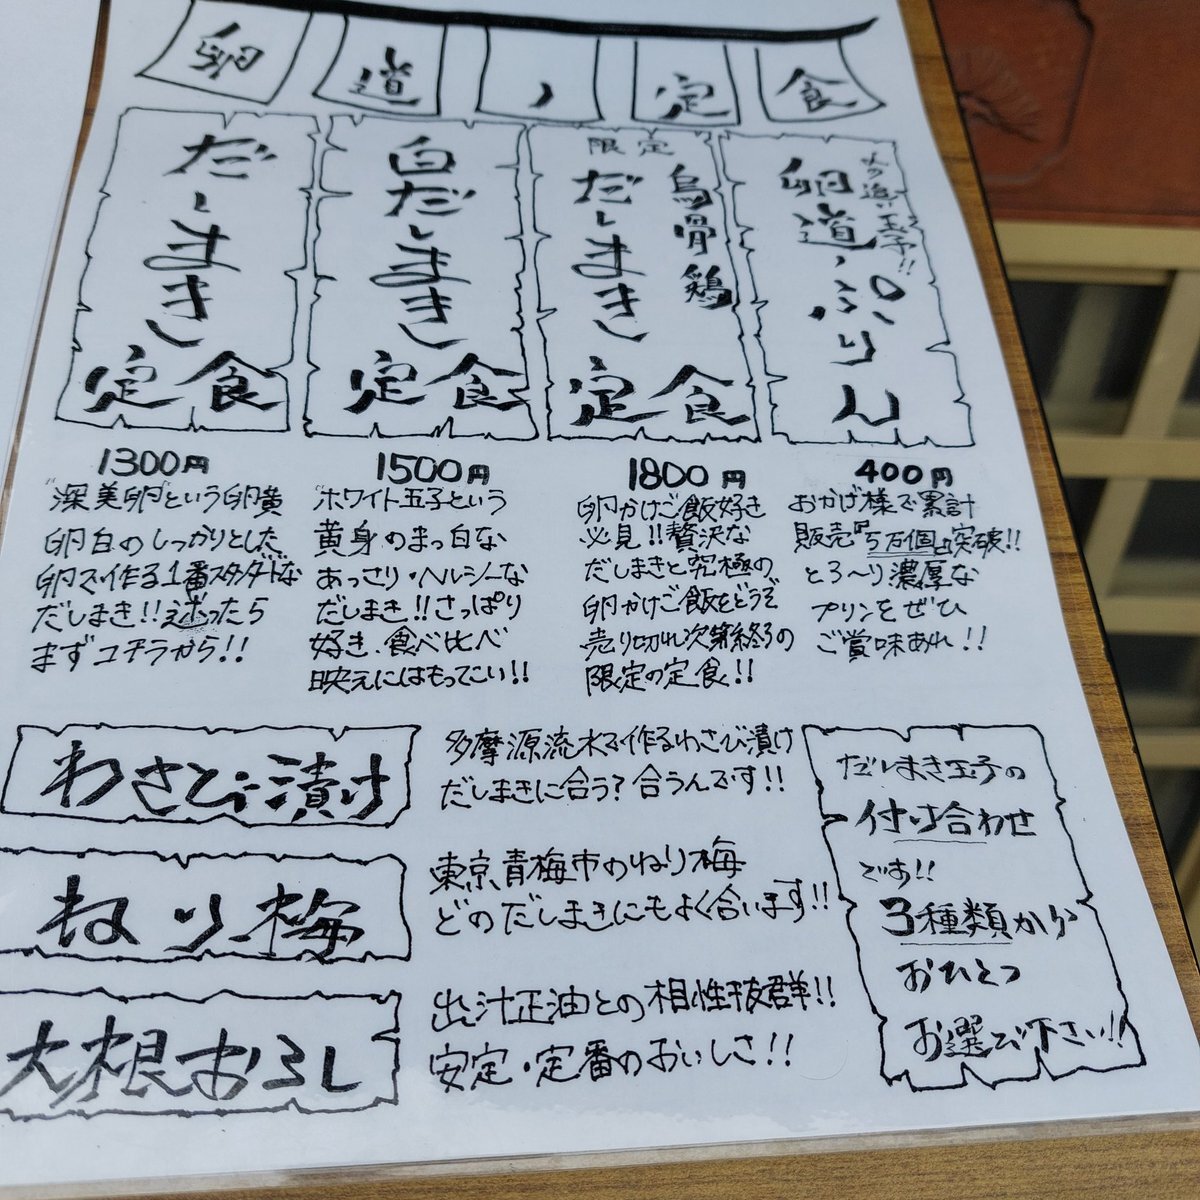 卵道ノ定食
だしまき定食
1300円
"深美卵"という卵黄
卵白のしっかりとした
卵で作る1番スタンダードな
だしまき!!迷ったら
まずコチラから!!
白だしまき定食
1500円
"ホワイト玉子という
黄身のまっ白な
あっさり・ヘルシーな
だしまき!!さっぱり
好き、食べ比べ
映えにはもってこい!!
限定
烏骨鶏
だしまき定食
1800円
卵かけご飯好き
必見!!贅沢な
だしまきと究極の
卵かけご飯をどうぞ
売り切れ次第終了の
限定の定食!!
卵道ノぷりん
400円
おかげ様で累計
販売『5万個』突破!!
とろ〜り濃厚な
プリンをぜひ
ご賞味あれ!!
わさび漬け
多摩源流水で作るわさび漬け
だしまきに合う?合うんです!!
ねり梅
東京青梅市のねり梅
どのだしまきにもよく合います!!
大根おろし
出汁正油との相性抜群!!
安定・定番のおいしさ!!
だしまき玉子の
付け合わせ
です!!
3種類から
おひとつ
お選び下さい!!